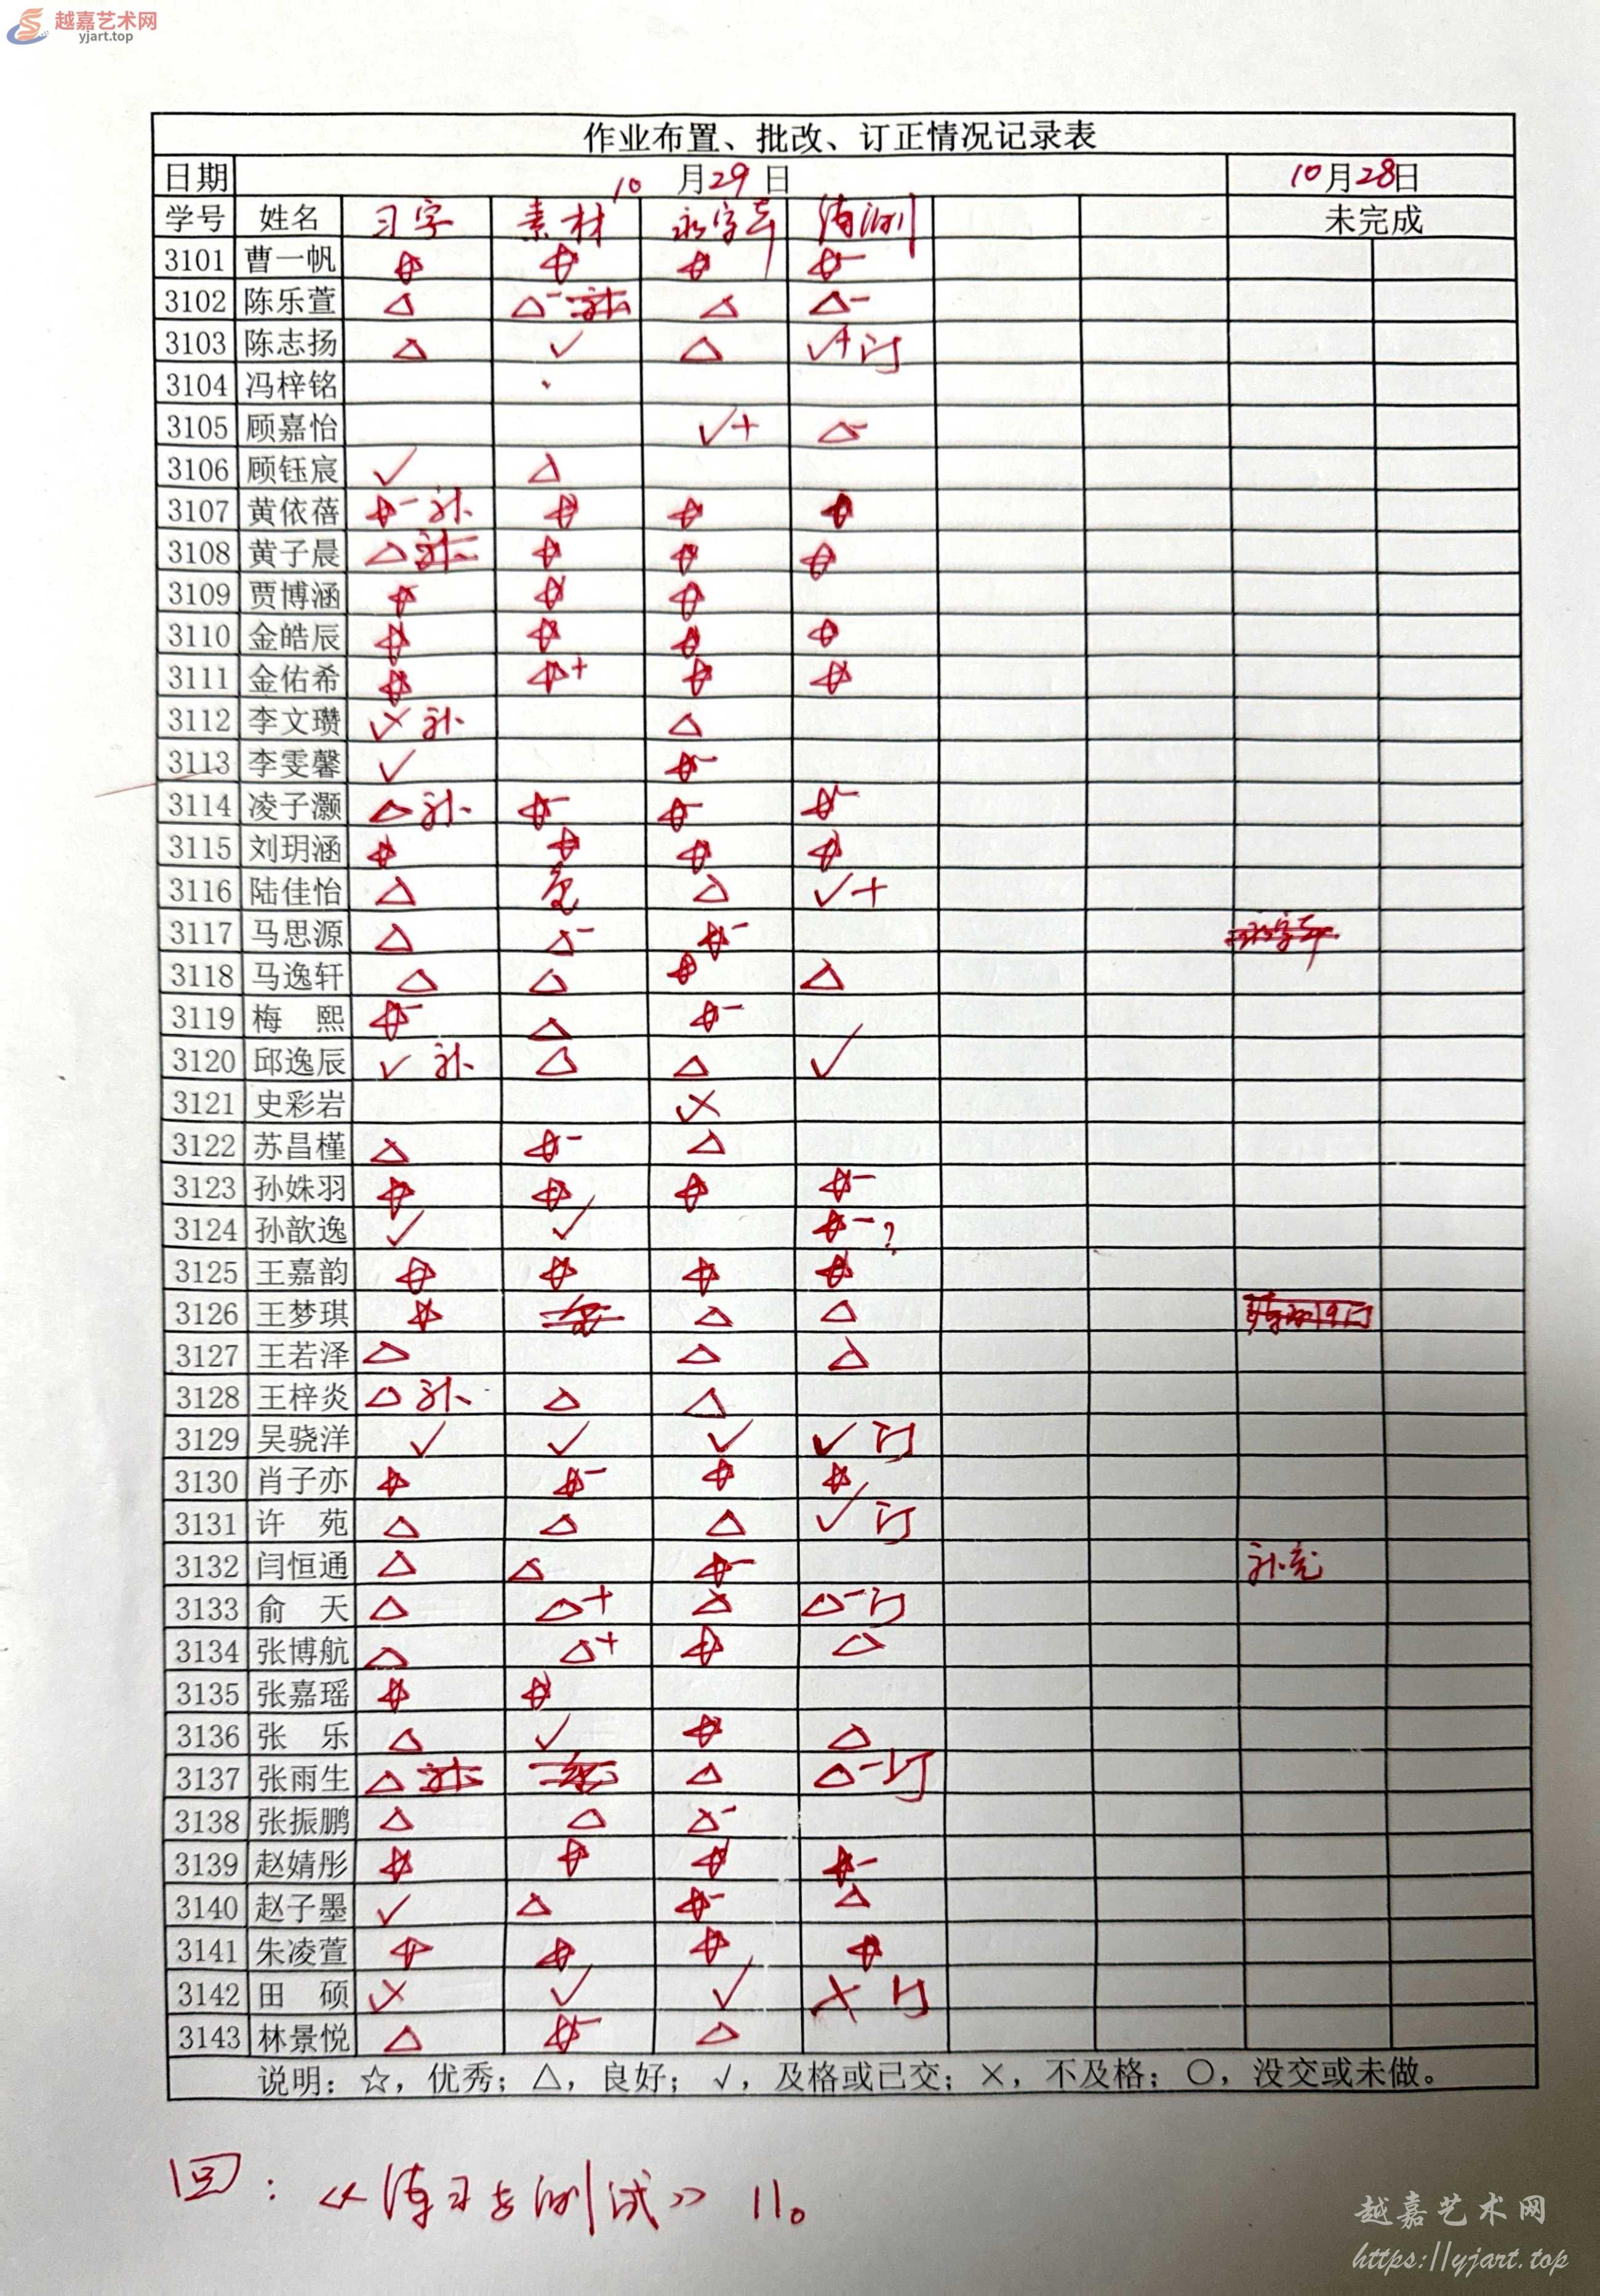 越嘉艺术网
yjart.top
作业布置、批改、订正情况记录表
日期 10 月 29 日 10 月 28 日
学号 姓名 习字 素材 练测 未完成
3101 曹一帆 ☆ ☆ ☆ ☆-
3102 陈乐萱 △ △- 补 △ △-
3103 陈志扬 △ √ △ √+ 订
3104 冯梓铭
3105 顾嘉怡 √+ △-
3106 顾钰宸 √ △
3107 黄依蓓 ☆- 补 ☆ ☆ ☆
3108 黄子晨 △ 补 ☆ ☆ ☆
3109 贾博涵 ☆ ☆ ☆
3110 金皓辰 ☆ ☆ ☆ ☆
3111 金佑希 ☆ ☆+ ☆ ☆
3112 李文瓒 × 补 △
3113 李雯馨 √ ☆-
3114 凌子灏 △ 补 ☆- ☆- ☆-
3115 刘玥涵 ☆ ☆ ☆ ☆
3116 陆佳怡 △ △ √+
3117 马思源 △ △- ☆-
3118 马逸轩 △ △ ☆ △
3119 梅 熙 ☆- △ ☆-
3120 邱逸辰 √ 补 △ △ √
3121 史彩岩 ×
3122 苏昌槿 △ ☆- △
3123 孙姝羽 ☆ ☆ ☆ ☆-
3124 孙歆逸 √ √ ☆- ?
3125 王嘉韵 ☆ ☆ ☆ ☆
3126 王梦琪 ☆ △ △
3127 王若泽 △ △ △
3128 王梓炎 △ 补 △ △
3129 吴骁洋 √ √ √ √ 订
3130 肖子亦 ☆ ☆- ☆ ☆
3131 许 苑 △ △ △ √ 订
3132 闫恒通 △ △ ☆- 补充
3133 俞 天 △ △+ △ △- 订
3134 张博航 △ △+ ☆ △
3135 张嘉瑶 ☆ ☆
3136 张 乐 △ √ ☆ △
3137 张雨生 △ 补 △ △- 订
3138 张振鹏 △ △ △-
3139 赵婧彤 ☆ ☆ ☆ ☆-
3140 赵子墨 √ △ ☆- △
3141 朱凌萱 ☆ ☆ ☆ ☆
3142 田 硕 × √ √ × 订
3143 林景悦 △ ☆- △
说明：☆，优秀；△，良好；√，及格或已交；×，不及格；○，没交或未做。
回：《练习与测试》11。
越嘉艺术网
https://yjart.top